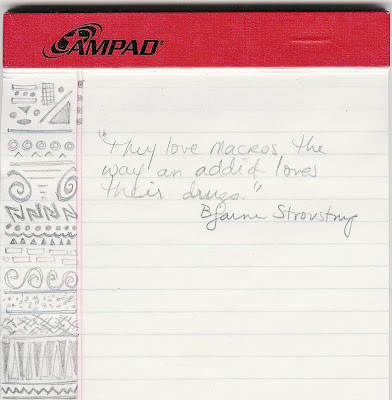 AMPAD
"They love macros the
way an addict loves
their drugs."
Bjarne Stroustrup